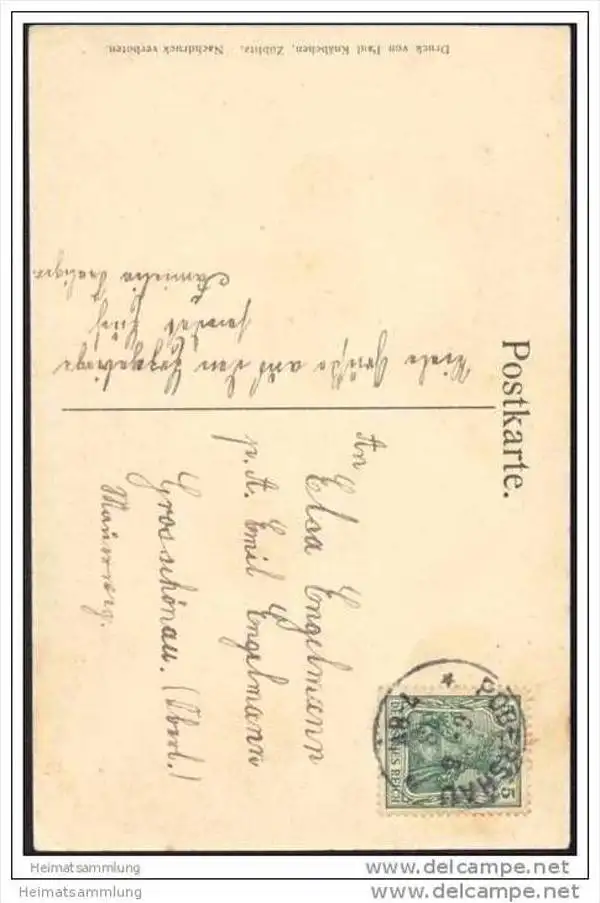 Postkarte.
Viele Grüße aus dem Erzgebirge
sendet Euch
Familie
An
Elsa Engelmann
p. A. Emil Engelmann
Grosschönau. (Oberl.)
Druck von Paul Knäbchen, Zöblitz. Nachdruck verboten.
POBERSHAU
5
DEUTSCHES REICH
Heimatsammlung
www.delcampe.net
Heimatsammlung
www.delcampe.net